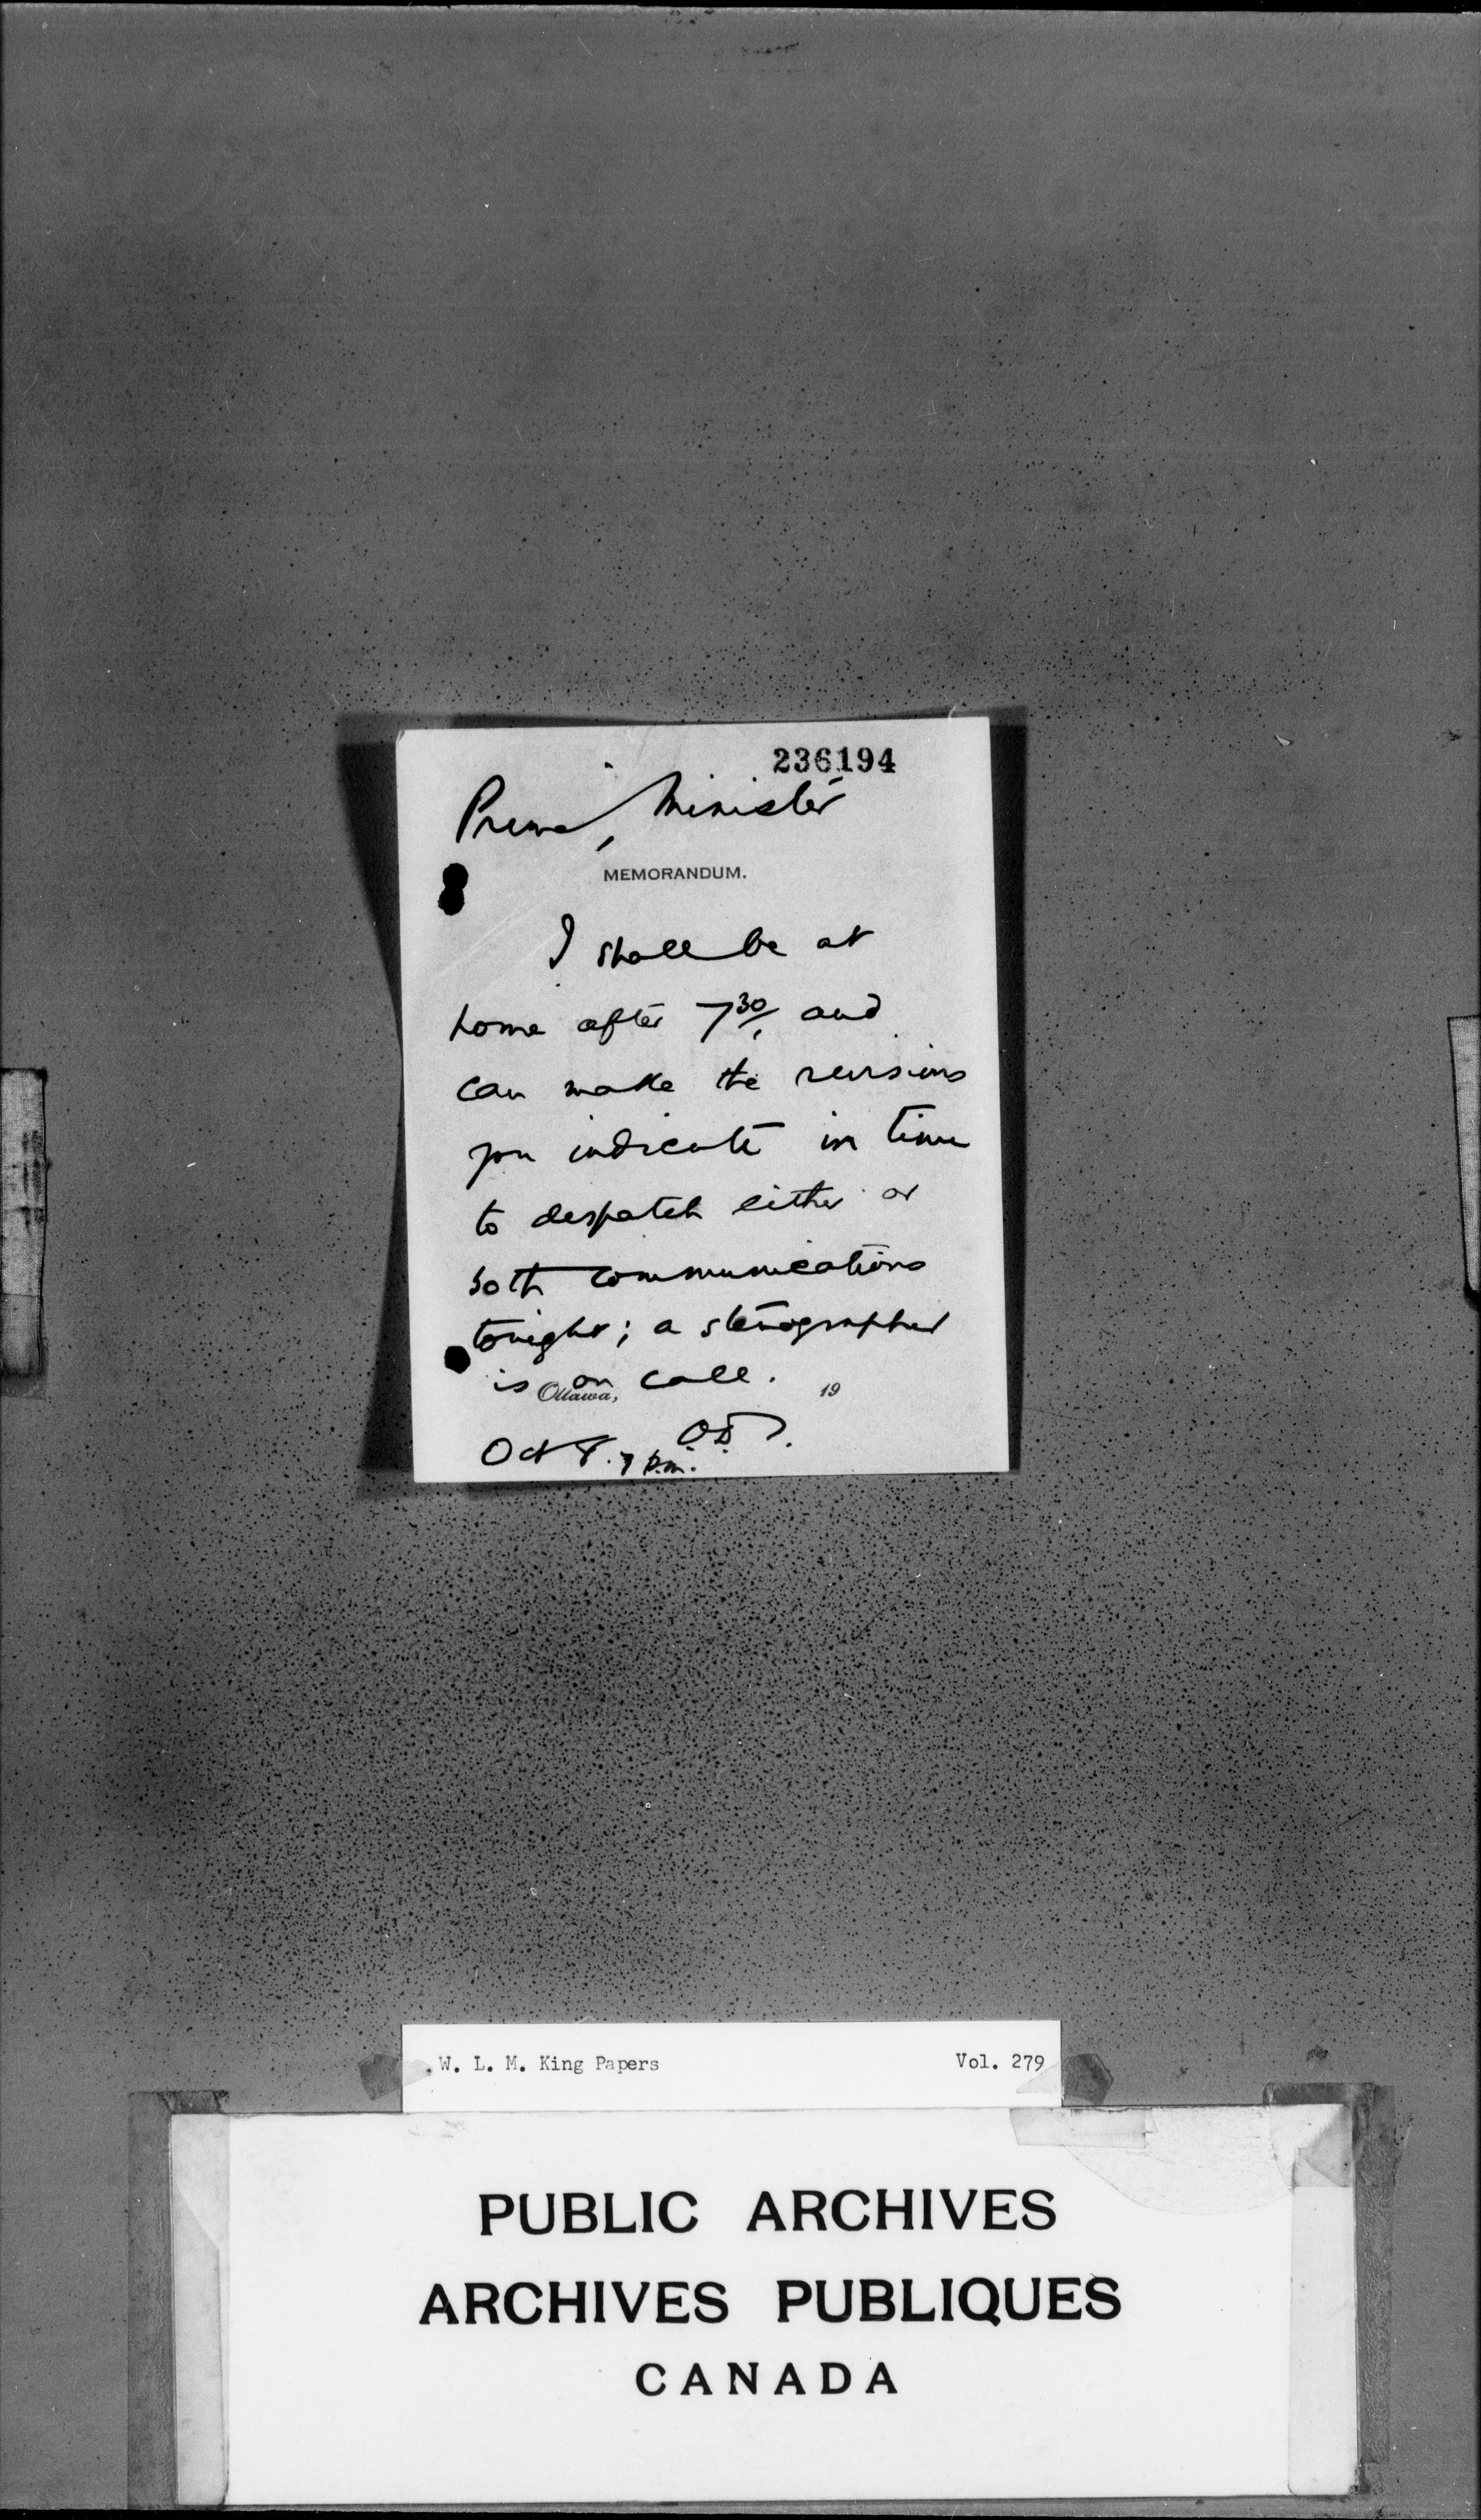 236194
Prime Minister
MEMORANDUM.
I shall be at
home after 7 30/, and
can make the revisions
you indicate in time
to despatch either or
both communications
tonight; a stenographer
is on call.
Ottawa, 19
O.D.
Oct 8. 7 p.m.
W. L. M. King Papers Vol. 279
PUBLIC ARCHIVES
ARCHIVES PUBLIQUES
CANADA